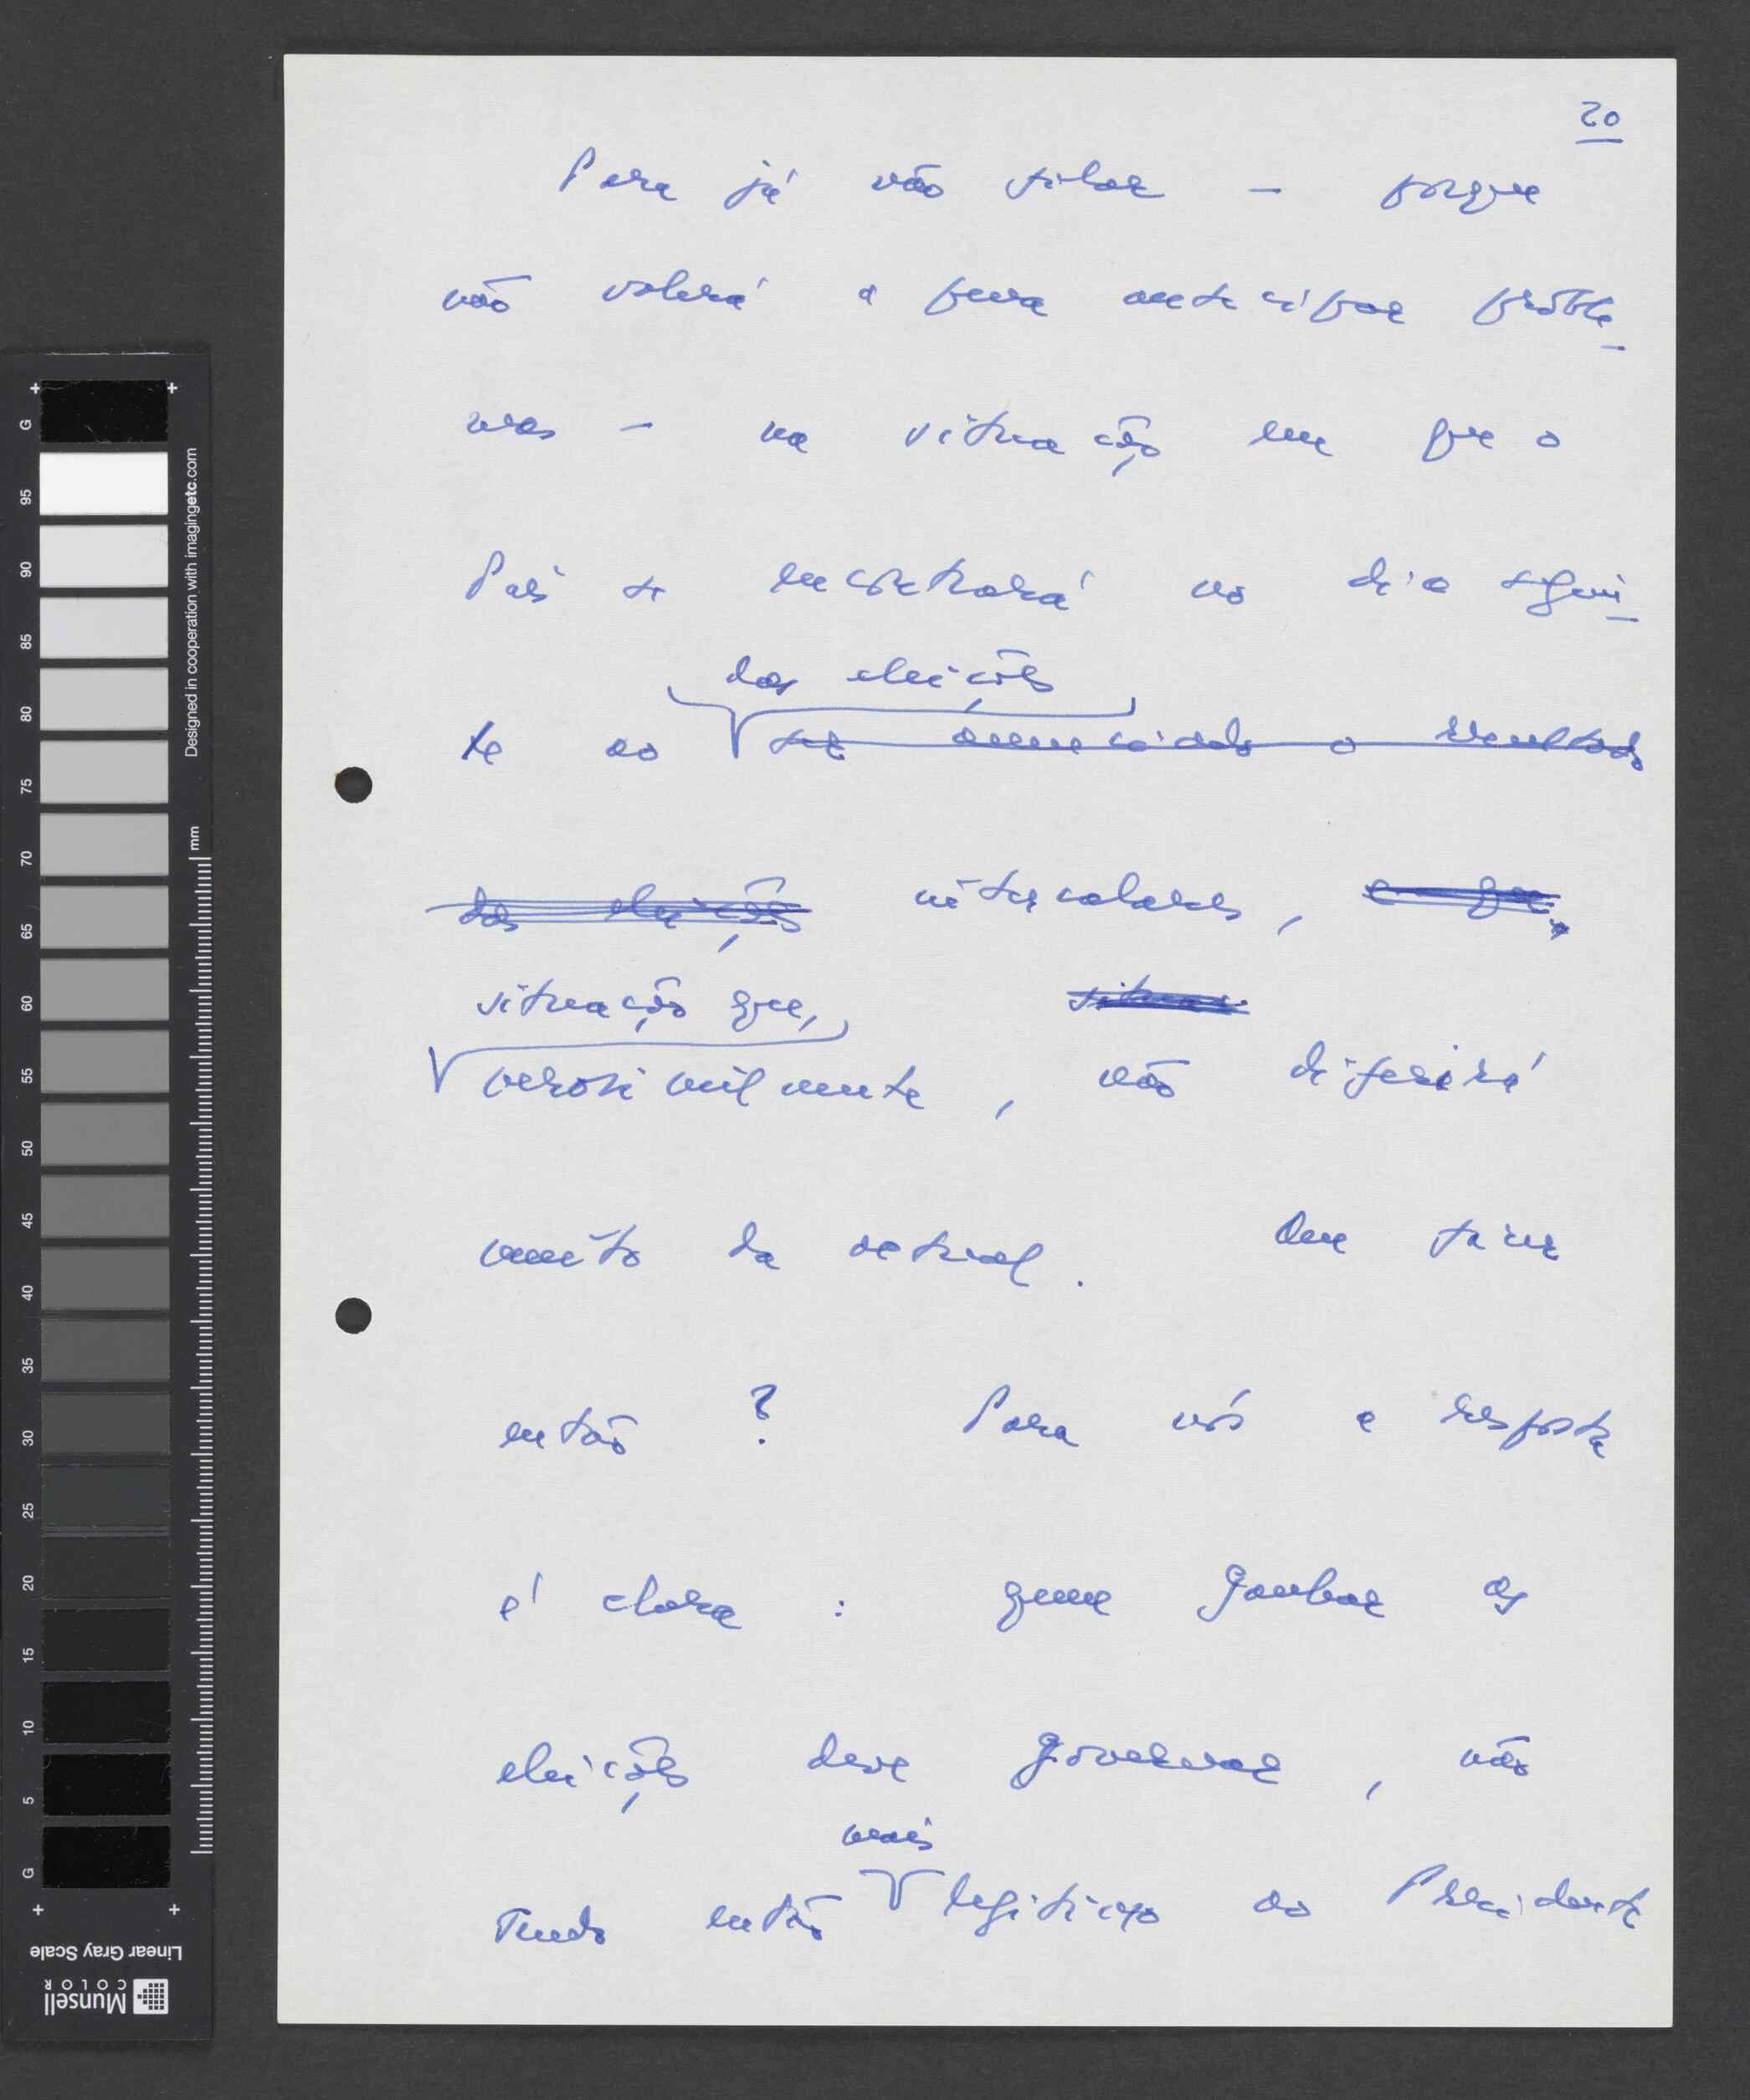 20
Para já não falar — porque
não valerá a pena antecipar proble-
mas — na situação em que o
País se encontrará no dia segui-
das eleições
te ao ser anunciado o resultado
das eleições intercalares, e que,
situação que,
verosimilmente, não diferirá
muito da actual. Que fazer
então? Para nós a resposta
é clara: quem ganhar as
eleições deve governar, não
mais
sendo então legítimo ao Presidente
G
95
90
85
80
75
70
65
60
55
50
45
40
35
30
25
20
15
10
5
G
Designed in cooperation with imagingetc.com
mm
Linear Gray Scale
Munsell
COLOR